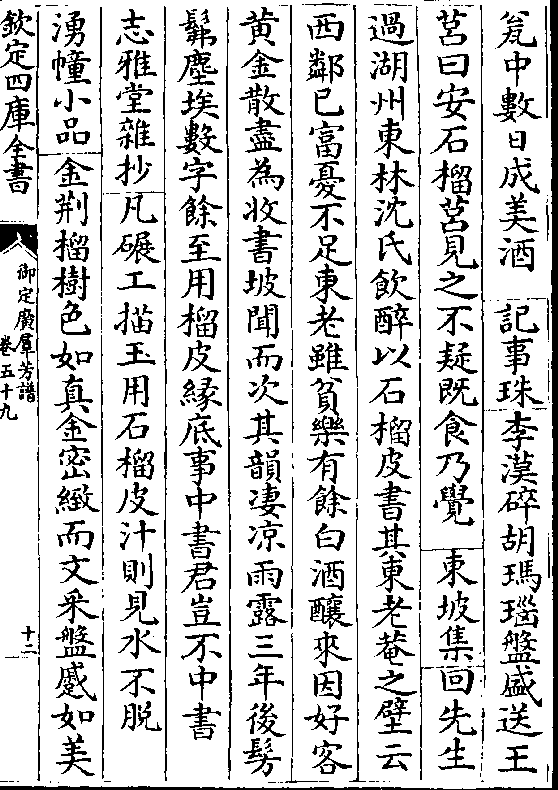 瓮中數日成美酒　記事珠李漠碎胡瑪瑙盤盛送王
莒曰安石榴莒見之不疑既食乃覺　東坡集回先生
過湖州東林沈氏飲醉以石榴皮書其東老菴之壁云
西鄰已富憂不足東老雖貧樂有餘白酒釀來因好客
黄金散盡為收書坡聞而次其韻凄凉雨露三年後髣
髴塵埃數字餘至用榴皮緣底事中書君豈不中書
志雅堂雜抄凡碾工描玉用石榴皮汁則見水不脱
湧幢小品　金荆榴樹色如真金密緻而文采盤蹙如美
欽定四庫全書
御定廣羣芳譜
卷五十九
十二